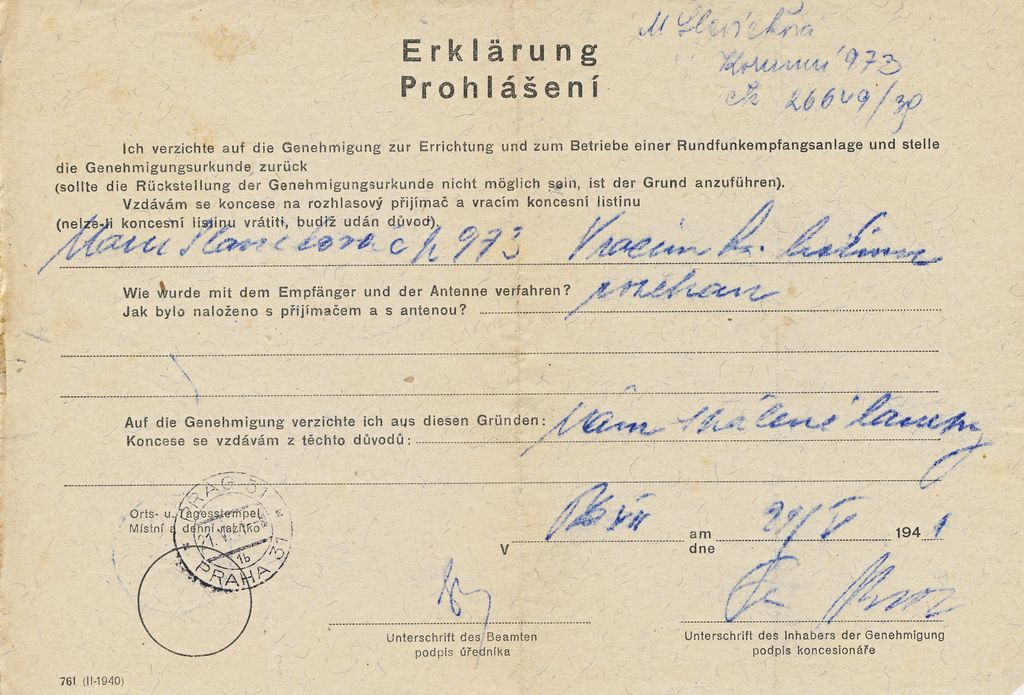 Erklärung
Prohlášení
973
26649/39
Ich verzichte auf die Genehmigung zur Errichtung und zum Betriebe einer Rundfunkempfangsanlage und stelle
die Genehmigungsurkunde zurück
(sollte die Rückstellung der Genehmigungsurkunde nicht möglich sein, ist der Grund anzuführen).
Vzdávám se koncese na rozhlasový přijímač a vracím koncesní listinu
(nelze-li koncesní listinu vrátiti, budiž udán důvod).
čp 973 Vracím listinu
Wie wurde mit dem Empfänger und der Antenne verfahren?
Jak bylo naloženo s přijímačem a s antenou?
Auf die Genehmigung verzichte ich aus diesen Gründen:
Koncese se vzdávám z těchto důvodů:
Orts- u. Tagesstempel
Místní a denní razítko
PRAG 31
1b
PRAHA 31
V
am
dne
194 1
Unterschrift des Beamten
podpis úředníka
Unterschrift des Inhabers der Genehmigung
podpis koncesionáře
761 (II-1940)